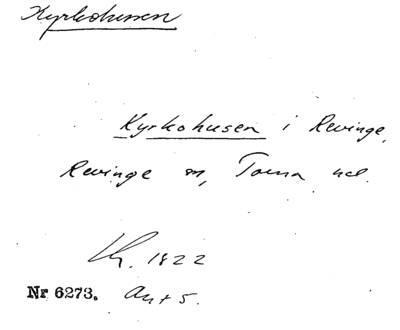 Kyrkohusen
Kyrkohusen i Revinge,
Revinge sn, Torna hd.
Lh. 1822
Nr 6273. Akt 5.